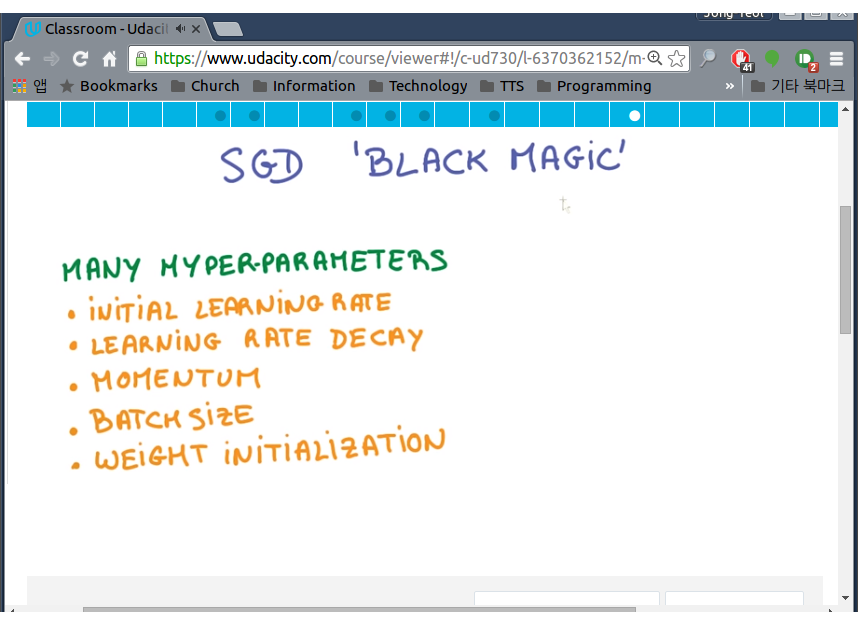 Jong Yeol
Classroom - Udacit
https://www.udacity.com/course/viewer#!/c-ud730/l-6370362152/m-
41
2
앱 Bookmarks Church Information Technology TTS Programming » 기타 북마크
SGD 'BLACK MAGIC'
MANY HYPER-PARAMETERS
• INITIAL LEARNING RATE
• LEARNING RATE DECAY
• MOMENTUM
• BATCH SIZE
• WEIGHT INITIALIZATION